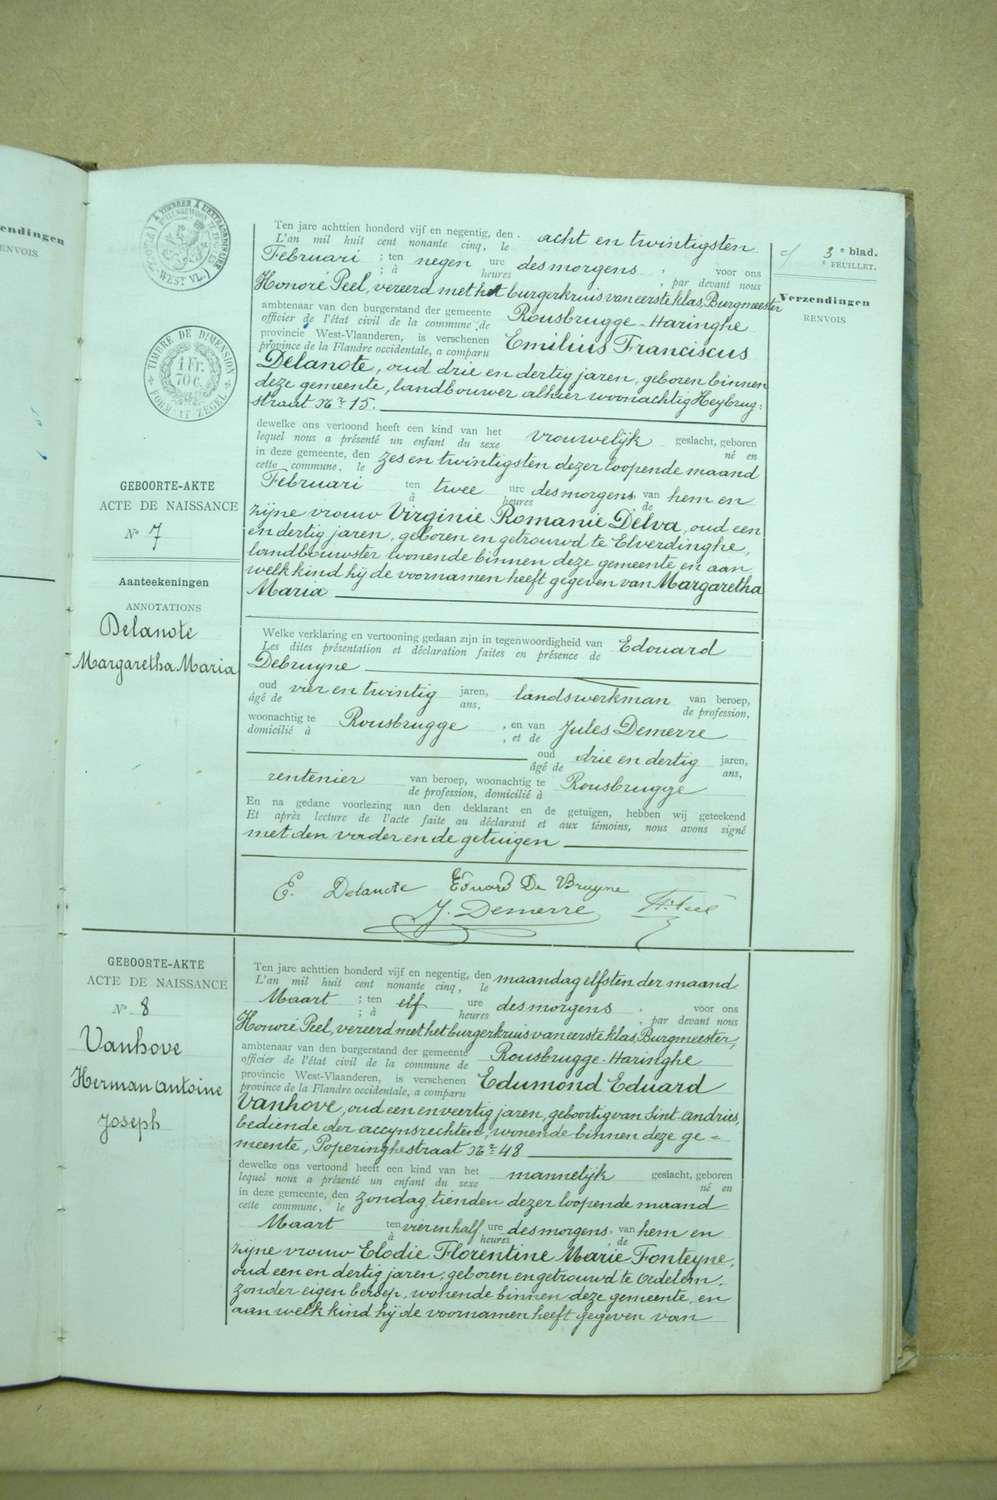 zendingen
RENVOIS
À TIMBRER À L'EXTRAORDINAIRE
WEST VL.
TIMBRE DE DIMENSION
1 Fr.
70 C.
FORMAAT ZEGEL
3e blad.
e FEUILLET.
Verzendingen
RENVOIS
GEBOORTE-AKTE
ACTE DE NAISSANCE
No 7
Aanteekeningen
ANNOTATIONS
Delanote
Margaretha Maria
Ten jare achttien honderd vijf en negentig, den acht en twintigsten
L'an mil huit cent nonante cinq, le
Februari ; ten negen ure des morgens , voor ons
; à heures , par devant nous
Honoré Peel, vereerd met het burgerkruis van eerste klas, Burgmeester
ambtenaar van den burgerstand der gemeente Rousbrugge-Haringhe
officier de l'état civil de la commune de
provincie West-Vlaanderen, is verschenen Emilius Franciscus
province de la Flandre occidentale, a comparu
Delanote, oud drie en dertig jaren, geboren binnen
deze gemeente, landbouwer alhier woonachtig Heybrug:
straat No 15.
dewelke ons vertoond heeft een kind van het vrouwelijk geslacht, geboren
lequel nous a présenté un enfant du sexe né en
in deze gemeente, den zes en twintigsten dezer loopende maand
cette commune, le
Februari ten twee ure des morgens van hem en
à heures de
zijne vrouw Virginie Romanie Delva, oud een
en dertig jaren, geboren en getrouwd te Elverdinghe,
landbouwster wonende binnen deze gemeente en aan
welk kind hij de voornamen heeft gegeven van Margaretha
Maria
Welke verklaring en vertooning gedaan zijn in tegenwoordigheid van Edouard
Les dites présentation et déclaration faites en présence de
Debruyne
oud vier en twintig jaren, landswerkman van beroep,
âgé de ans, de profession,
woonachtig te Rousbrugge , en van Jules Demerre
domicilié à , et de
oud drie en dertig jaren,
âgé de ans,
rentenier van beroep, woonachtig te Rousbrugge
de profession, domicilié à
En na gedane voorlezing aan den deklarant en de getuigen, hebben wij geteekend
Et après lecture de l'acte faite au déclarant et aux témoins, nous avons signé
met den vader en de getuigen
E. Delanote Eduard De Bruyne
J. Demerre H. Peel
GEBOORTE-AKTE
ACTE DE NAISSANCE
No 8
Vanhove
Herman Antoine
Joseph
Ten jare achttien honderd vijf en negentig, den maandag elfsten der maand
L'an mil huit cent nonante cinq, le
Maart ; ten elf ure des morgens , voor ons
; à heures , par devant nous
Honoré Peel, vereerd met het burgerkruis van eerste klas, Burgmeester,
ambtenaar van den burgerstand der gemeente Rousbrugge-Haringhe
officier de l'état civil de la commune de
provincie West-Vlaanderen, is verschenen Edumond Eduard
province de la Flandre occidentale, a comparu
Vanhove, oud een en veertig jaren, geboortig van Sint Andries,
bediende der accynsrechten, wonende binnen deze ge-
meente, Poperinghestraat No 48
dewelke ons vertoond heeft een kind van het mannelijk geslacht, geboren
lequel nous a présenté un enfant du sexe né en
in deze gemeente, den zondag tienden dezer loopende maand
cette commune, le
Maart ten vier en half ure des morgens, van hem en
à heures de
zijne vrouw Elodie Florentine Marie Fonteyne,
oud een en dertig jaren, geboren en getrouwd te Oedelem,
zonder eigen beroep, wonende binnen deze gemeente, en
aan welk kind hij de voornamen heeft gegeven van